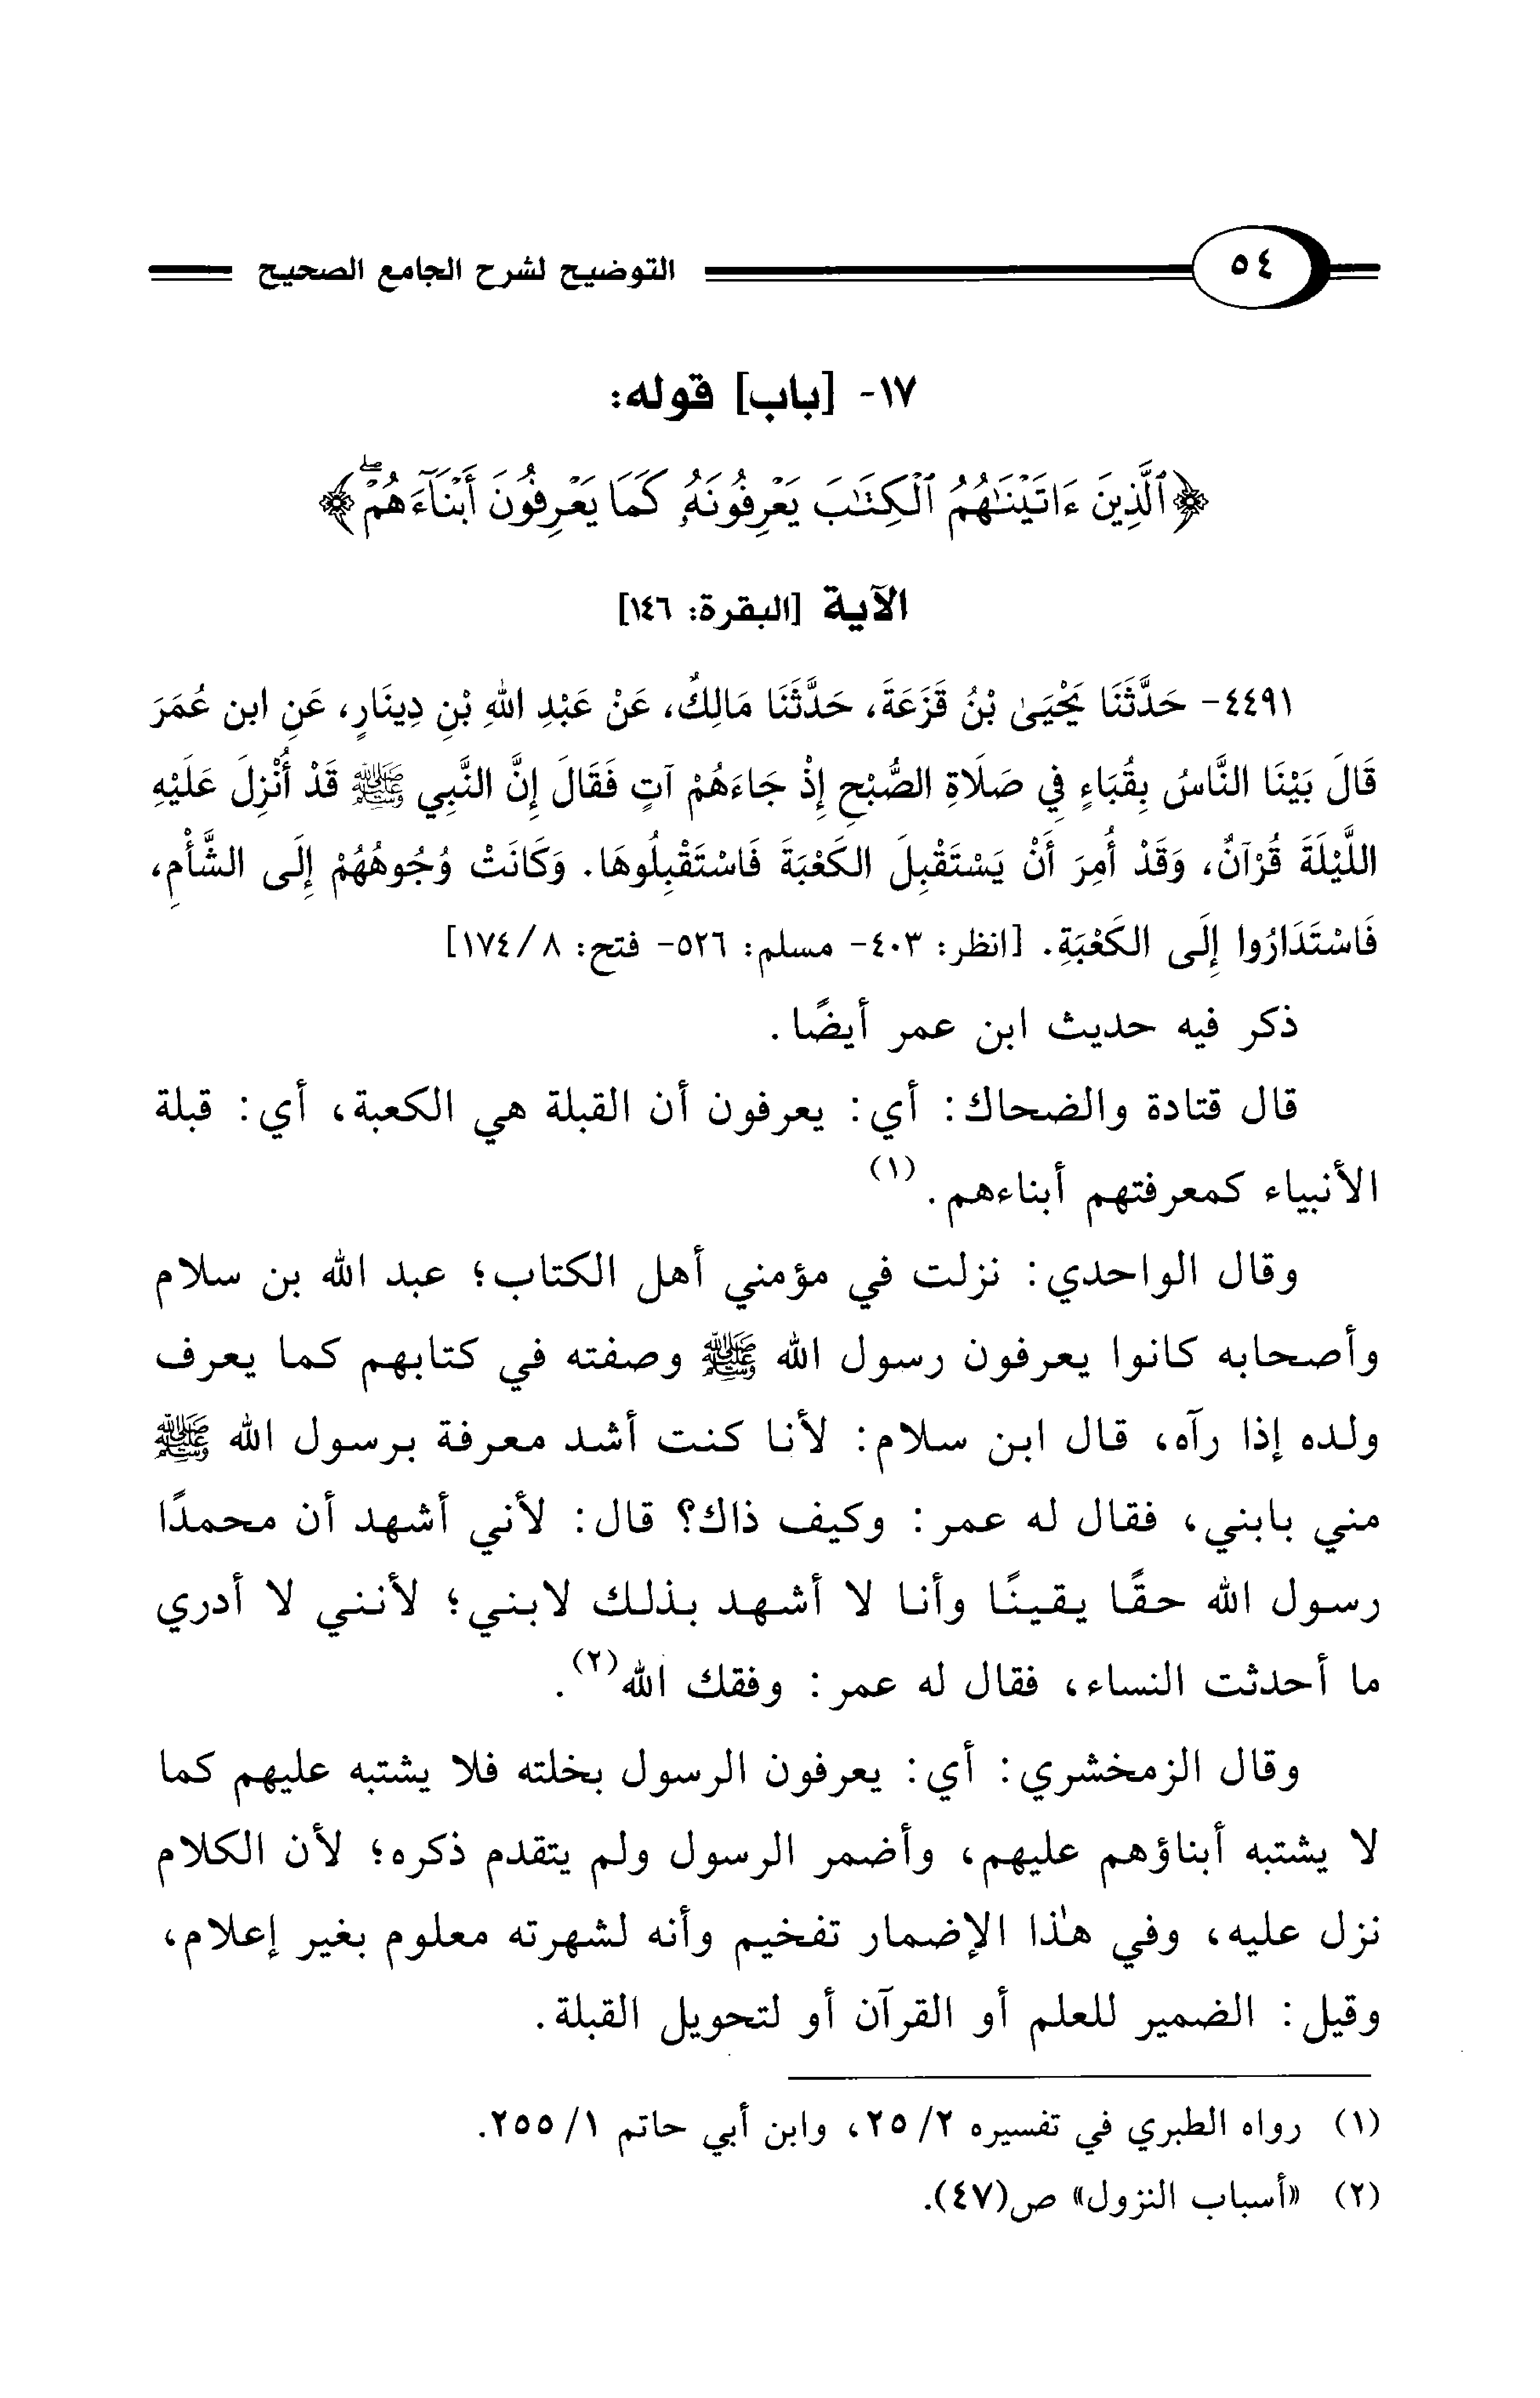 ٥٤ التوضيح لشرح الجامع الصحيح
١٧- [باب] قوله:
﴿ٱلَّذِينَ ءَاتَيْنَٰهُمُ ٱلْكِتَٰبَ يَعْرِفُونَهُۥ كَمَا يَعْرِفُونَ أَبْنَآءَهُمْۖ﴾
الآية [البقرة: ١٤٦]
٤٤٩١- حَدَّثَنَا يَحْيَىٰ بْنُ قَزَعَةَ، حَدَّثَنَا مَالِكٌ، عَنْ عَبْدِ اللهِ بْنِ دِينَارٍ، عَنِ ابن عُمَرَ
قَالَ بَيْنَا النَّاسُ بِقُبَاءٍ فِي صَلَاةِ الصُّبْحِ إِذْ جَاءَهُمْ آتٍ فَقَالَ إِنَّ النَّبِي ﷺ قَدْ أُنْزِلَ عَلَيْهِ
اللَّيْلَةَ قُرْآنٌ، وَقَدْ أُمِرَ أَنْ يَسْتَقْبِلَ الكَعْبَةَ فَاسْتَقْبِلُوهَا. وَكَانَتْ وُجُوهُهُمْ إِلَى الشَّأْمِ،
فَاسْتَدَارُوا إِلَى الكَعْبَةِ. [انظر: ٤٠٣- مسلم: ٥٢٦- فتح: ٨/ ١٧٤]
ذكر فيه حديث ابن عمر أيضًا.
قال قتادة والضحاك: أي: يعرفون أن القبلة هي الكعبة، أي: قبلة
الأنبياء كمعرفتهم أبناءهم.(١)
وقال الواحدي: نزلت في مؤمني أهل الكتاب؛ عبد الله بن سلام
وأصحابه كانوا يعرفون رسول الله ﷺ وصفته في كتابهم كما يعرف
ولده إذا رآه، قال ابن سلام: لأنا كنت أشد معرفة برسول الله ﷺ
مني بابني، فقال له عمر: وكيف ذاك؟ قال: لأني أشهد أن محمدًا
رسول الله حقًا يقينًا وأنا لا أشهد بذلك لابني؛ لأنني لا أدري
ما أحدثت النساء، فقال له عمر: وفقك الله(٢).
وقال الزمخشري: أي: يعرفون الرسول بخلته فلا يشتبه عليهم كما
لا يشتبه أبناؤهم عليهم، وأضمر الرسول ولم يتقدم ذكره؛ لأن الكلام
نزل عليه، وفي هٰذا الإضمار تفخيم وأنه لشهرته معلوم بغير إعلام،
وقيل: الضمير للعلم أو القرآن أو لتحويل القبلة.
(١) رواه الطبري في تفسيره ٢/ ٢٥، وابن أبي حاتم ١/ ٢٥٥.
(٢) «أسباب النزول» ص(٤٧).